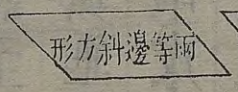 形方斜邊等兩